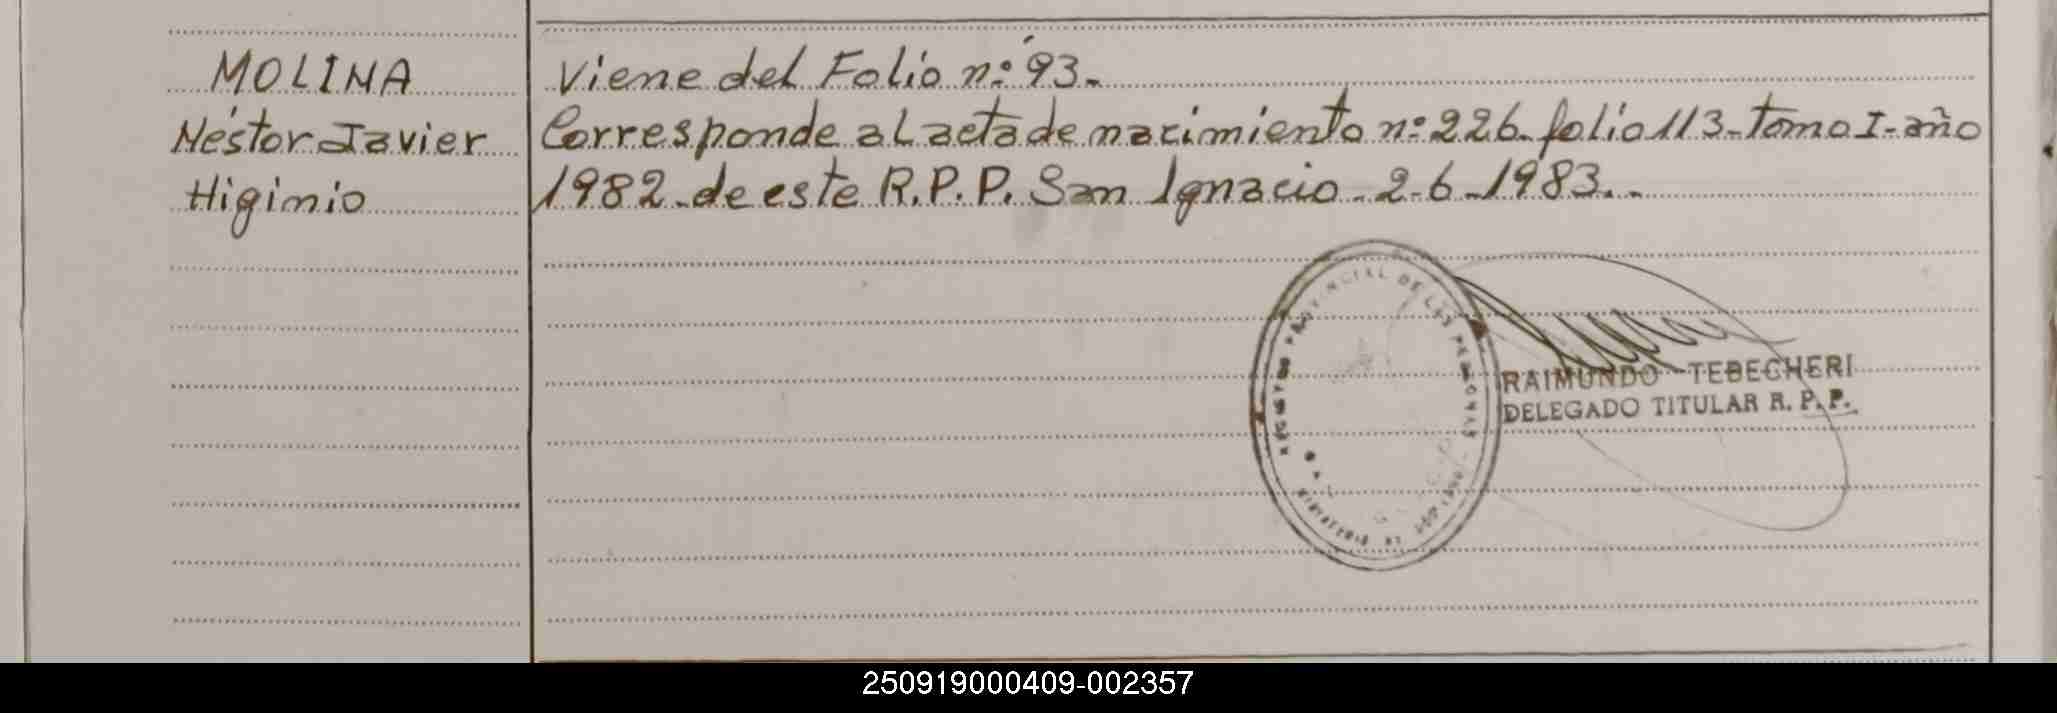 MOLINA
Néstor Javier
Higinio
Viene del Folio n:º 93.-
Corresponde al acta de nacimiento n:º 226. folio 113-tomo I-año
1982.-de este R.P.P. San Ignacio.-2-6-1983.-
REGISTRO PROVINCIAL DE LAS PERSONAS
RAIMUNDO TEBECHERI
DELEGADO TITULAR R. P. P.
250919000409-002357